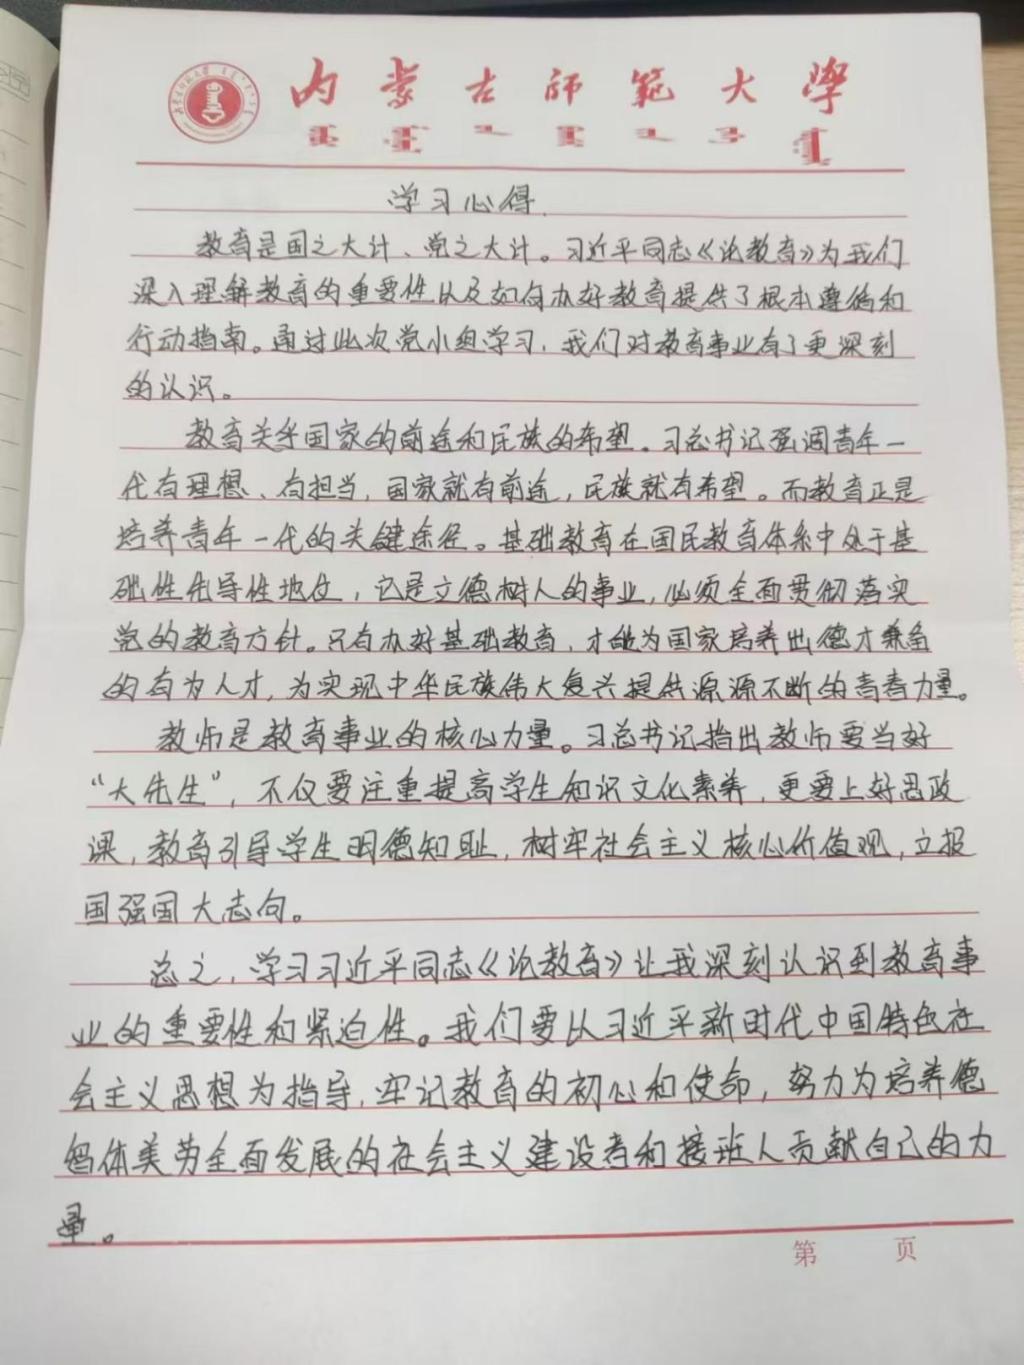 内蒙古师范大学
学习心得.
教育是国之大计、党之大计。习近平同志《论教育》为我们
深入理解教育的重要性以及如何办好教育提供了根本遵循和
行动指南。通过此次党小组学习，我们对教育事业有了更深刻
的认识。
教育关乎国家的前途和民族的希望。习总书记强调青年一
代有理想、有担当，国家就有前途，民族就有希望。而教育正是
培养青年一代的关键途径。基础教育在国民教育体系中处于基
础性先导性地位，它是立德树人的事业，必须全面贯彻落实
党的教育方针。只有办好基础教育，才能为国家培养出德才兼备
的有为人才，为实现中华民族伟大复兴提供源源不断的青春力量。
教师是教育事业的核心力量。习总书记指出教师要当好
“大先生”，不仅要注重提高学生知识文化素养，更要上好思政
课，教育引导学生明德知耻，树牢社会主义核心价值观，立报
国强国大志向。
总之，学习习近平同志《论教育》让我深刻认识到教育事
业的重要性和紧迫性。我们要以习近平新时代中国特色社
会主义思想为指导，牢记教育的初心和使命，努力为培养德
智体美劳全面发展的社会主义建设者和接班人贡献自己的力
量。
第 页